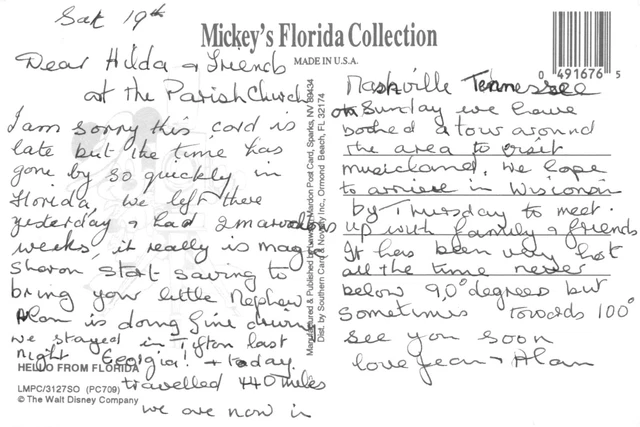 Sat 19th
Mickey's Florida Collection
MADE IN U.S.A.
0 491676 5
Dear Hilda & friends
at the Parish Church
I am sorry this card is
late but the time has
gone by so quickly in
Florida, we left there
yesterday & had 2 marvelous
weeks, it really is magic
Sharon start saving to
bring your little Nephew
Alan is doing fine driving
we stayed in Tifton last
night Georgia! & today
HELLO FROM FLORIDA
travelled 440 miles
LMPC/3127SO (PC709)
© The Walt Disney Company
we are now in
Manufactured & Published by Mardon Post Card, Sparks, NV 89434
Dist. by Southern Card & Novelty Inc., Ormond Beach, FL 32174
Nashville Tennessee
on Sunday we have
booked a tour around
the area to visit
musicland. we hope
to arrive in Wisconsin
by Thursday to meet
up with family & friends
It has been very hot
all the time never
below 90° degrees but
sometimes towards 100°
see you soon
love Jean & Alan